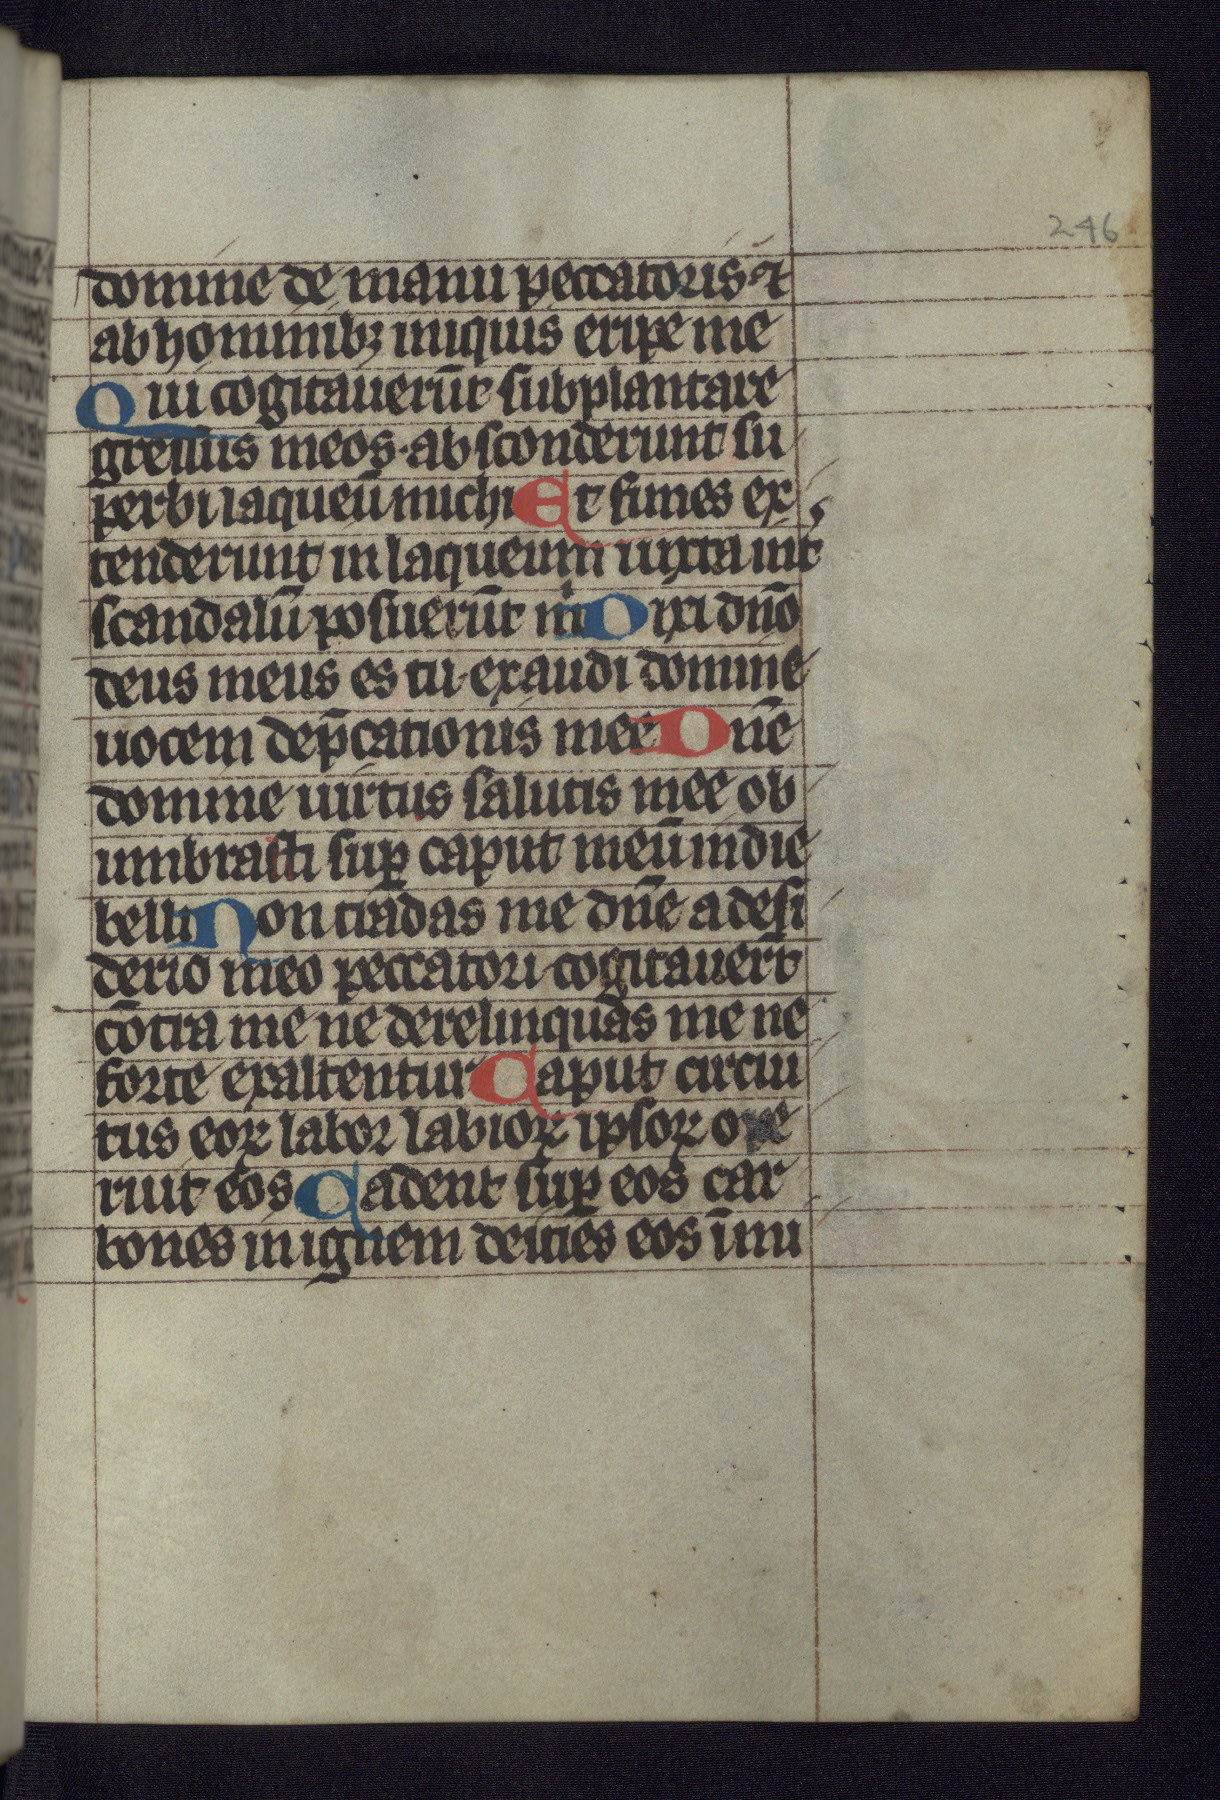 246
domine de manu peccatoris ⁊
ab hominibꝫ iniquis eripe me
Qui cogitauerūt subplantare
gressus meos · absconderunt su
perbi laqueū michi Et funes ex
tenderunt in laqueum iuxta int̄
scandalū posuerūt m̄ Dixi dn̄o
deus meus es tu · exaudi domine
uocem dep̄cationis mee Dn̄e
domine uirtus salutis mee ob
umbrasti suꝑ caput meū in die
belli Non tradas me dn̄e a desi
derio meo peccatori · cogitauer̄t
cōtra me ne derelinquas me ne
forte exaltentur Caput circui
tus eoꝝ labor labioꝝ ipsoꝝ ope
riut eos Cadent suꝑ eos car
bones in ignem deicies eos ī mi